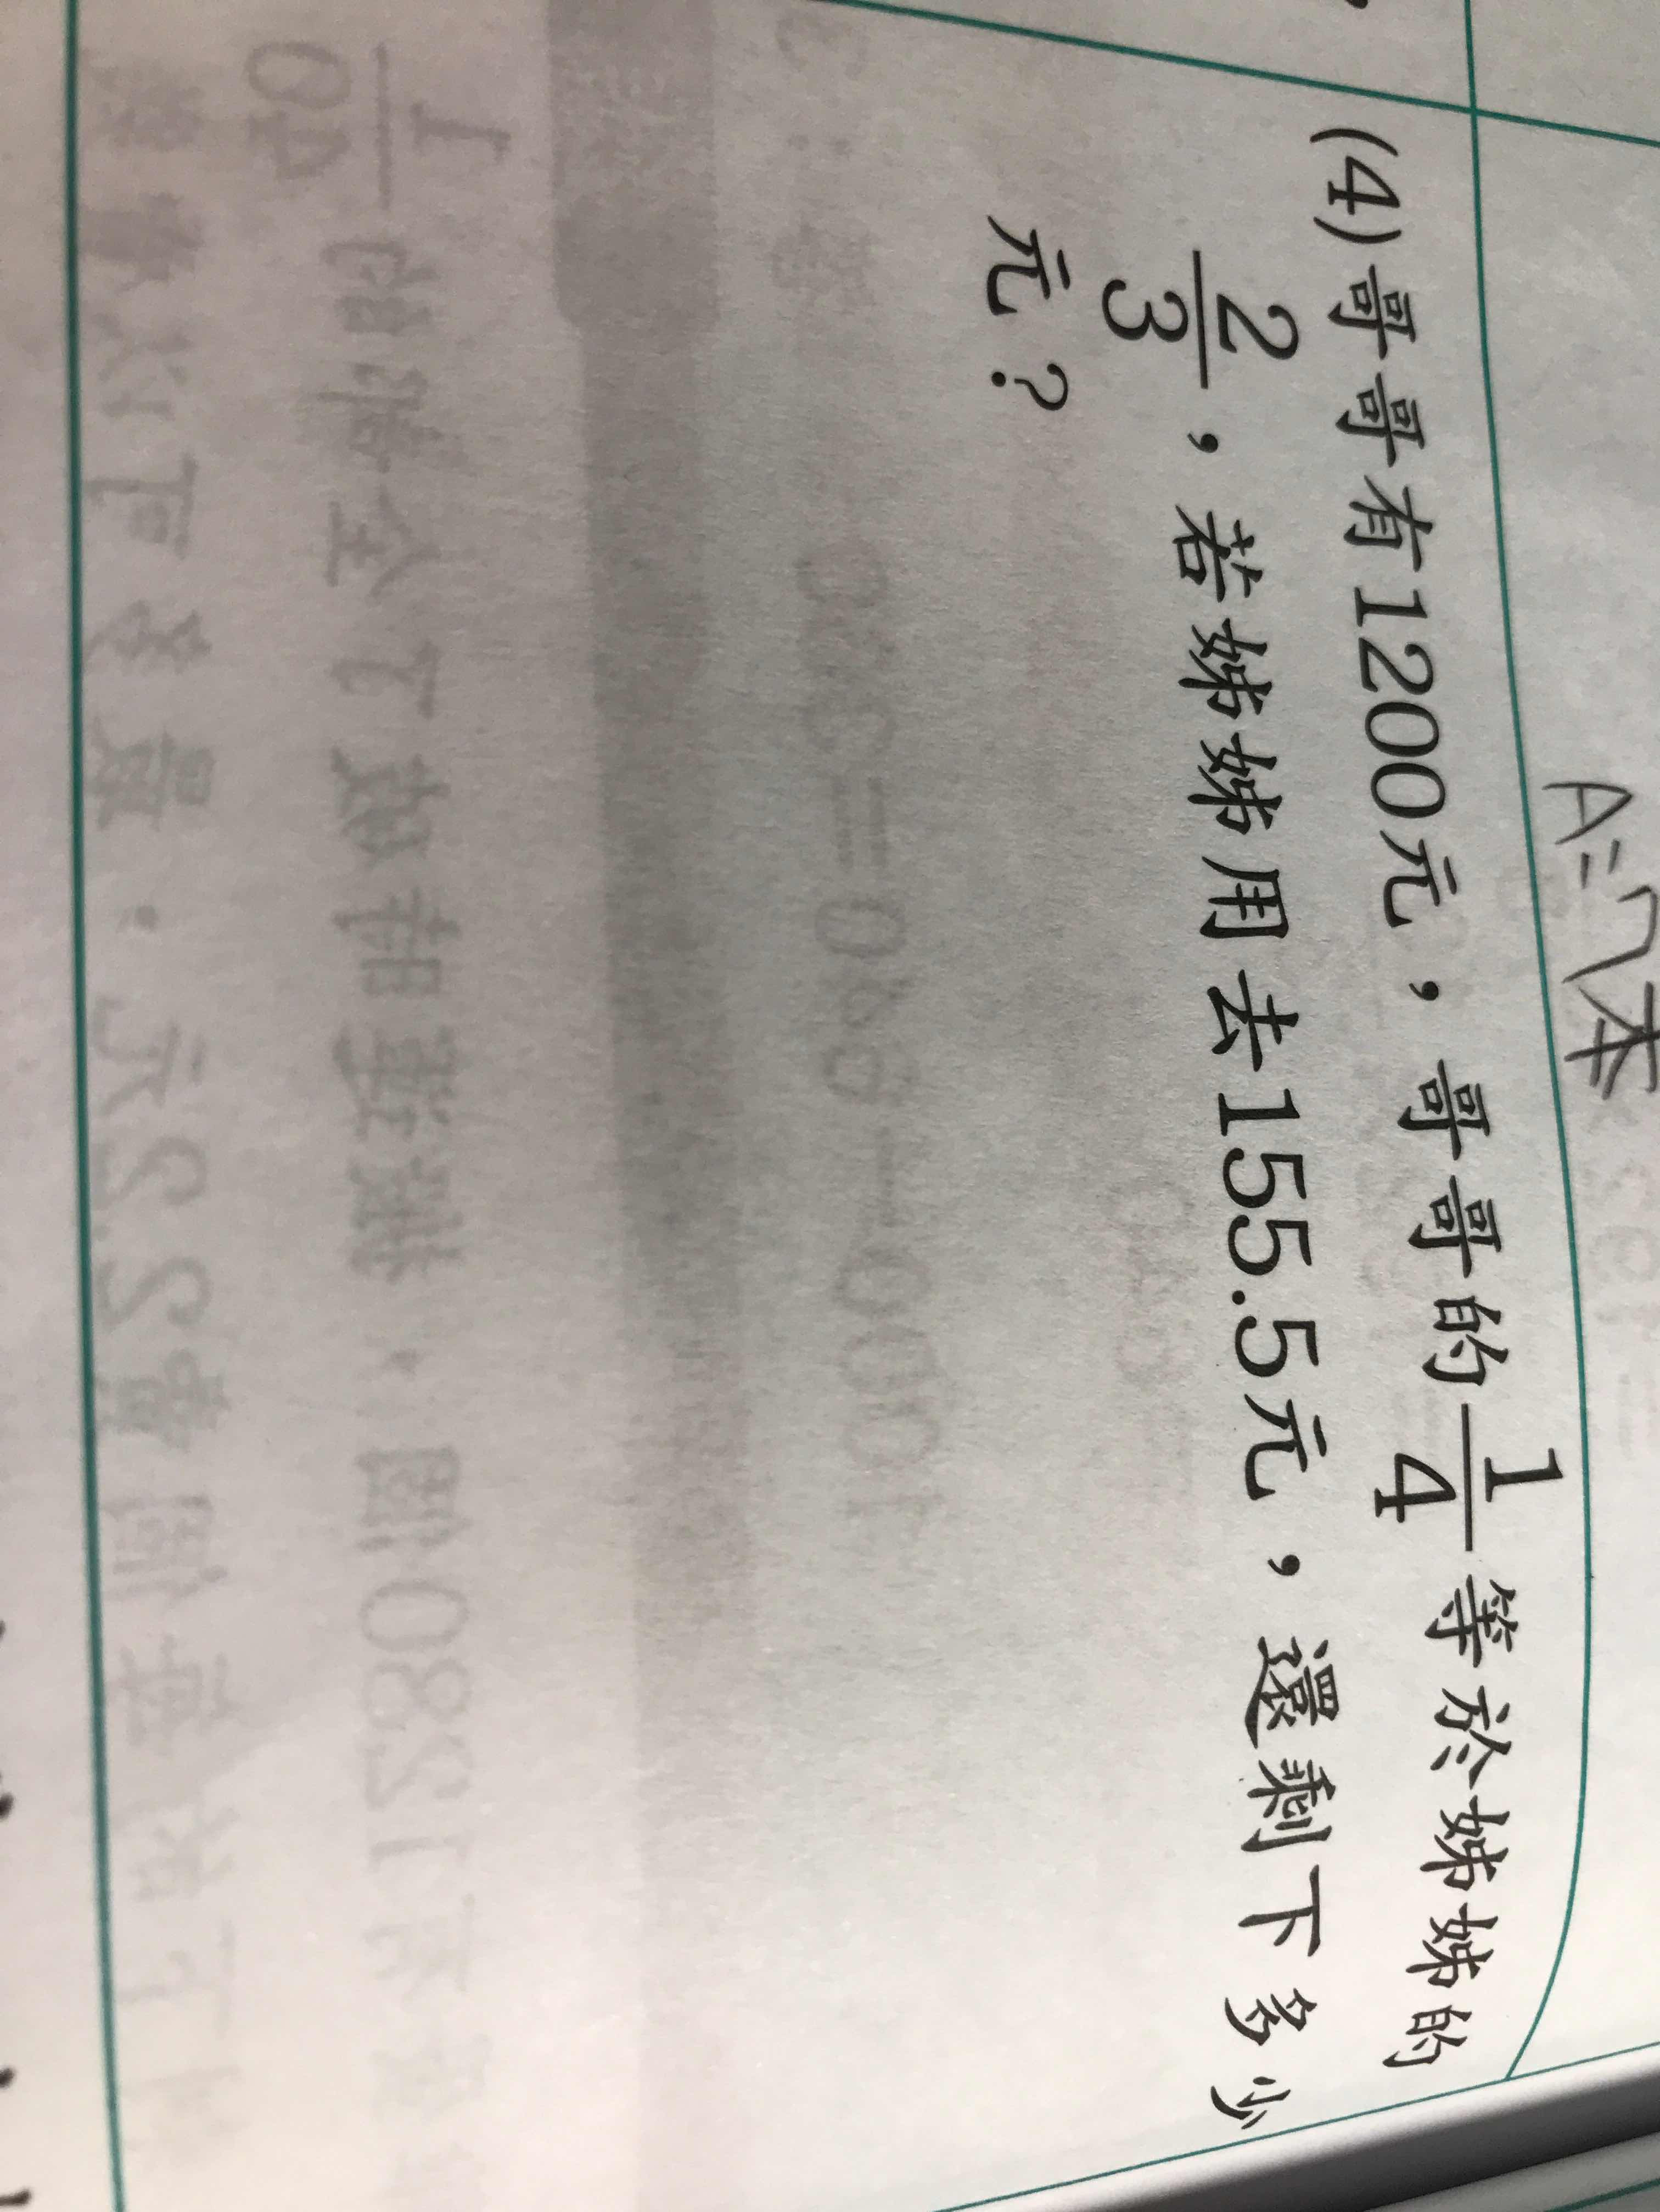 A=7本
(4)哥哥有1200元，哥哥的1/4等於姊姊的
2/3，若姊姊用去155.5元，還剩下多少
元？